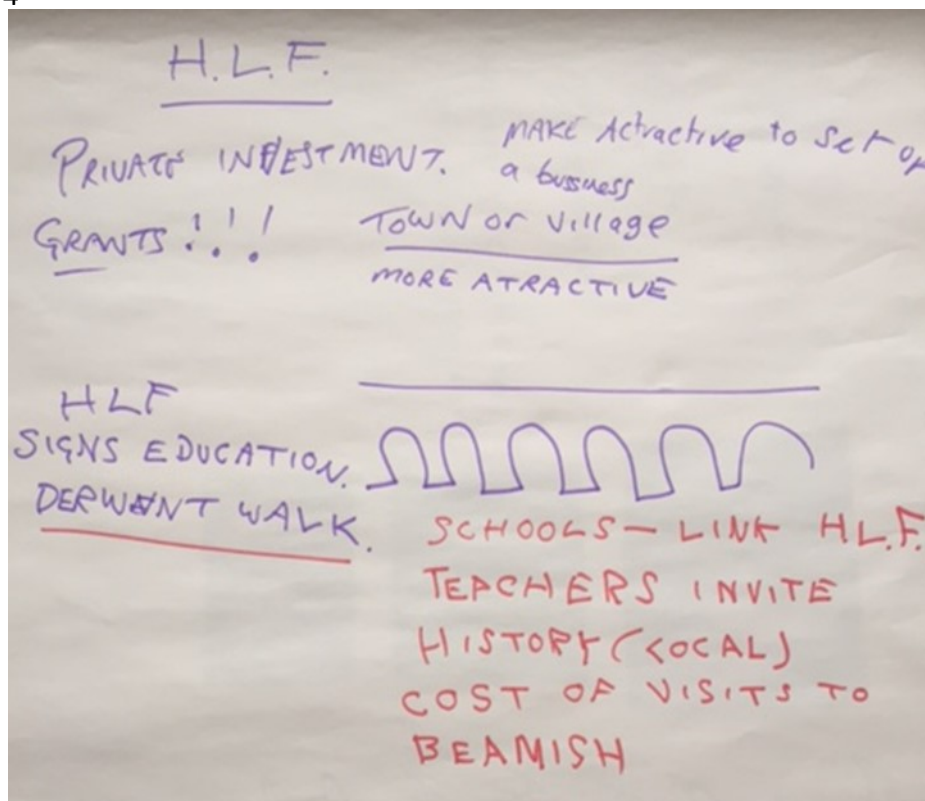 4
H.L.F.
PRIVATE INVESTMENT.
GRANTS!!!
MAKE Actractive to Set up
a bussness
TOWN or Village
MORE ATRACTIVE
HLF
SIGNS EDUCATION.
DERWENT WALK.
SCHOOLS – LINK H.L.F.
TEACHERS INVITE
HISTORY (LOCAL)
COST OF VISITS TO
BEAMISH